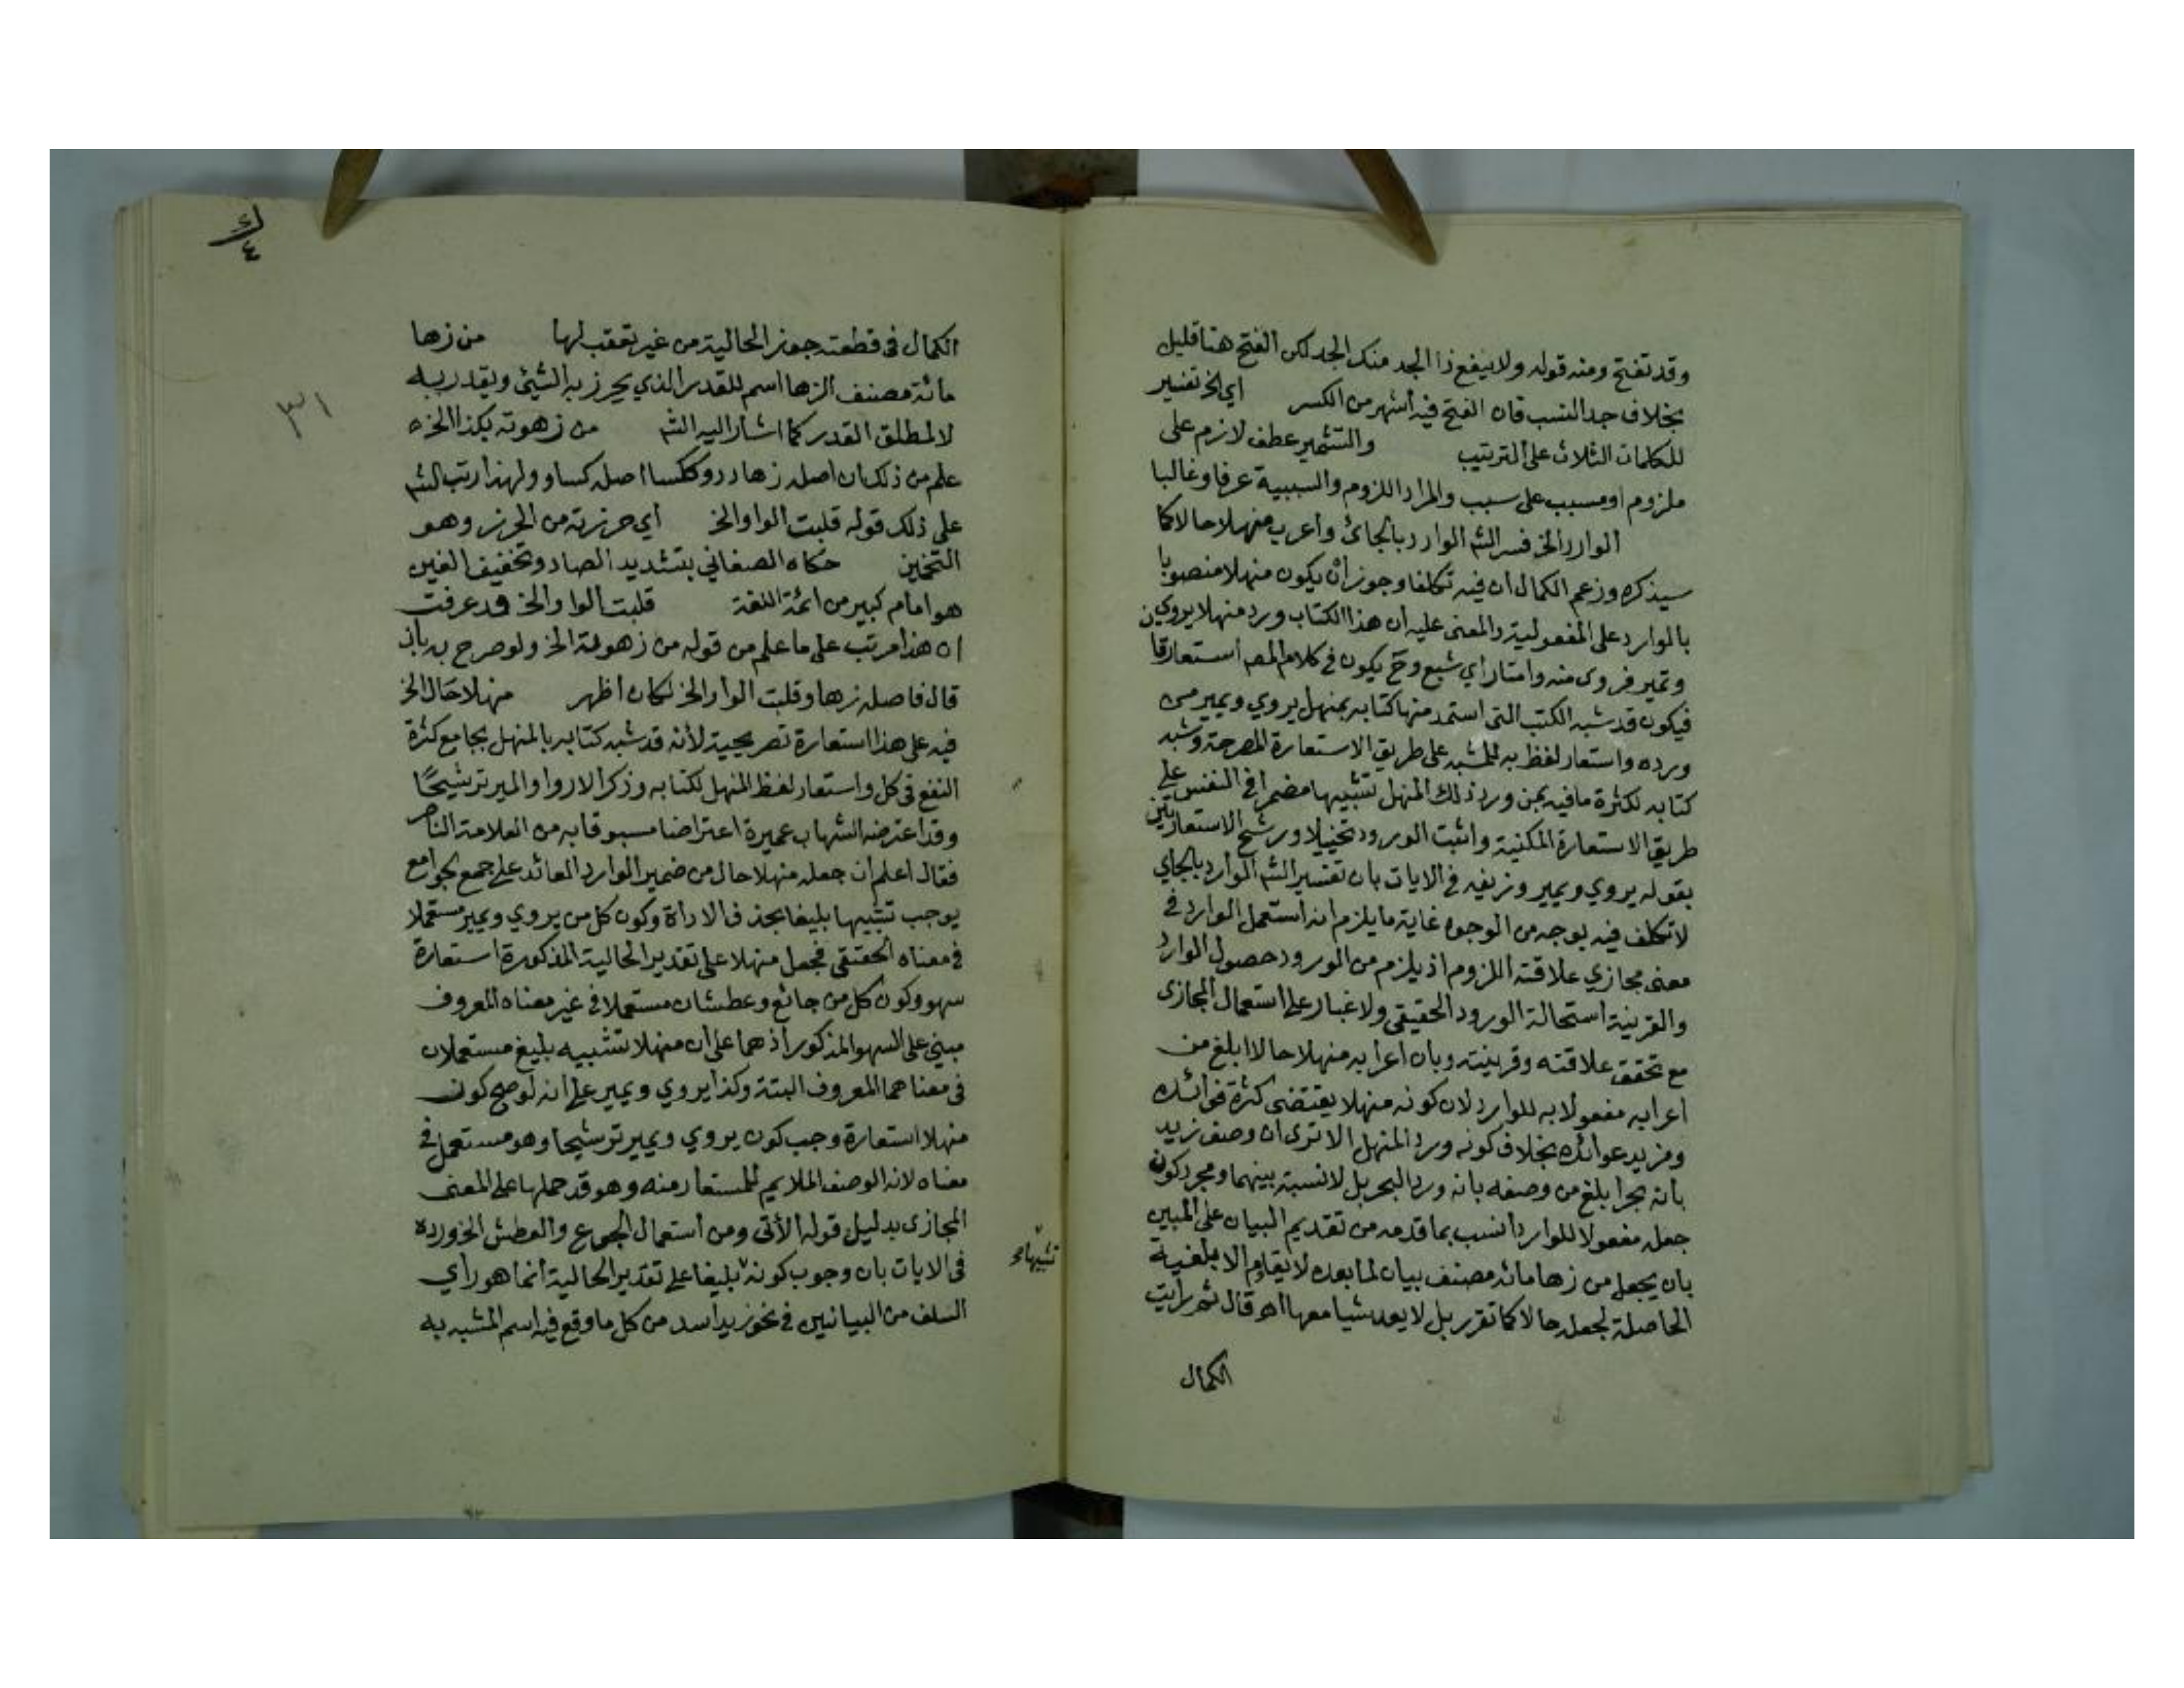 وقد تفتح ومنه قوله ولا ينفع ذا الجد منك الجد لكن الفتح هنا قليل
بخلاف جد النسب فان الفتح فيه اشهر من الكسر اي الخ تفسير
للكلمات الثلاث على الترتيب والتشمير عطف لازم على
ملزوم او مسبب على سبب والمراد اللزوم والسببية عرفا وغالبا
الوارد الخ فسر الشم الوارد بالجائ واعرب منهلا حالا كما
سيذكره وزعم الكمال ان فيه تكلفا وجوز ان يكون منهلا منصوبا
بالوارد على المفعولية والمعنى عليه ان هذا الكتاب ورد منهلا يروي من
ويمير فروى منه وامتار اي شبع وح يكون في كلام المص استعارتا
فيكون قد شبه الكتب التى استمد منها كتابه بمنهل يروي ويمير من
ورده واستعار لفظ به للمشبه على طريق الاستعارة المصرحة وشبه
كتابه لكثرة ما فيه بمن ورد ذلك المنهل تشبيها مضمرا في النفس على
طريق الاستعارة المكنية واثبت الورود تخييلا ورشح الاستعارتين
بقوله يروي ويمير وزيفه في الايات بان تفسير الشم الوارد بالجاي
لا تكلف فيه بوجه من الوجوه غاية ما يلزم انه استعمل الوارد في
معنى مجازي علاقته اللزوم اذ يلزم من الورود حصول الوارد
والقرينة استحالة الورود الحقيقي ولا غبار على استعمال المجازى
مع تحقق علاقته وقرينته وبان اعرابه منهلا حالا ابلغ من
اعرابه مفعولا به للوارد لان كونه منهلا يقتضى كثرة فوائده
ومزيد عوائده بخلاف كونه ورد المنهل الا ترى ان وصف زيد
بانه بحر ابلغ من وصفه بانه ورد البحر بل لا نسبة بينهما ومجرد كون
جعله مفعولا للوارد انسب بما قدمه من تقديم البيان على المبين
بان يجعل من زها مائة مصنف بيان لما بعده لا يقاوم الابلغية
الحاصلة لجعله حالا كما تقرر بل لا يعد شيا معها اهـ قال ثم رايت
الكمال
الكمال في قطعته جوز الحالية من غير تعقب لها من زها
مائة مصنف الزها اسم للقدر الذي يحرز به الشيئ ويقدر به
لا لمطلق القدر كما اشار اليه الشم من زهوته بكذا الخ
علم من ذلك ان اصل زها زهاو ككسا اصله كساو ولهذا رتب الشم
على ذلك قوله قلبت الواو الخ اي حرزته من الحرز وهو
التخمين حكاه الصغاني بتشديد الصاد وتخفيف الغين
هو امام كبير من ائمة اللغة قلبت الواو الخ قد عرفت
ان هذا مرتب على ما علم من قوله من زهوته الخ ولو صرح به بان
قال فاصله زهاو قلبت الواو الخ لكان اظهر منهلا حال الخ
فيه على هذا استعارة تصريحية لأنه قد شبه كتابه بالمنهل بجامع كثرة
النفع في كل واستعار لفظ المنهل لكتابه وذكر الاروا والمير ترشيحًا
وقد اعترضه الشهاب عميرة اعتراضا مسبوقا به من العلامة الناصر
فقال اعلم ان جعله منهلا حال من ضمير الوارد العائد على جمع الجوامع
يوجب تشبيها بليغا بحذف الاداة وكون كل من يروي ويمير مستعملا
في معناه الحقيقي فجعل منهلا على تقدير الحالية المذكورة استعارة
سهو وكون كل من جائع وعطشان مستعملا في غير معناه المعروف
مبني على السهو المذكور اذ هما على ان منهلا تشبيه بليغ مستعملان
في معناهما المعروف البتة وكذا يروي ويمير على انه لو صح كون
منهلا استعارة وجب كون يروي ويمير ترشيحا وهو مستعمل في
معناه لانه الوصف الملايم للمستعار منه وهو قد حملها على المعنى
المجازى بدليل قوله الأتى ومن استعمال الجوع والعطش الخ ورده
في الايات بان وجوب كونه بليغا على تقدير الحالية انما هو راي
السلف من البيانيين في نحو زيد اسد من كل ما وقع فيه اسم المشبه به
تشبيها
٣١